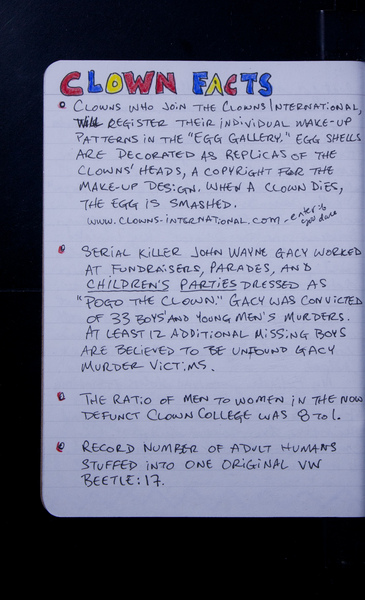 CLOWN FACTS
CLOWNS WHO JOIN THE CLOWNS INTERNATIONAL,
REGISTER THEIR INDIVIDUAL MAKE-UP
PATTERNS IN THE "EGG GALLERY." EGG SHELLS
ARE DECORATED AS REPLICAS OF THE
CLOWNS' HEADS, A COPYRIGHT FOR THE
MAKE-UP DESIGN. WHEN A CLOWN DIES,
THE EGG IS SMASHED.
WWW.CLOWNS-INTERNATIONAL.COM - enter if
you dare
SERIAL KILLER JOHN WAYNE GACY WORKED
AT FUNDRAISERS, PARADES, AND
CHILDREN'S PARTIES DRESSED AS
"POGO THE CLOWN." GACY WAS CONVICTED
OF 33 BOYS' AND YOUNG MEN'S MURDERS.
AT LEAST 12 ADDITIONAL MISSING BOYS
ARE BELIEVED TO BE UNFOUND GACY
MURDER VICTIMS.
THE RATIO OF MEN TO WOMEN IN THE NOW
DEFUNCT CLOWN COLLEGE WAS 8 TO 1.
RECORD NUMBER OF ADULT HUMANS
STUFFED INTO ONE ORIGINAL VW
BEETLE: 17.